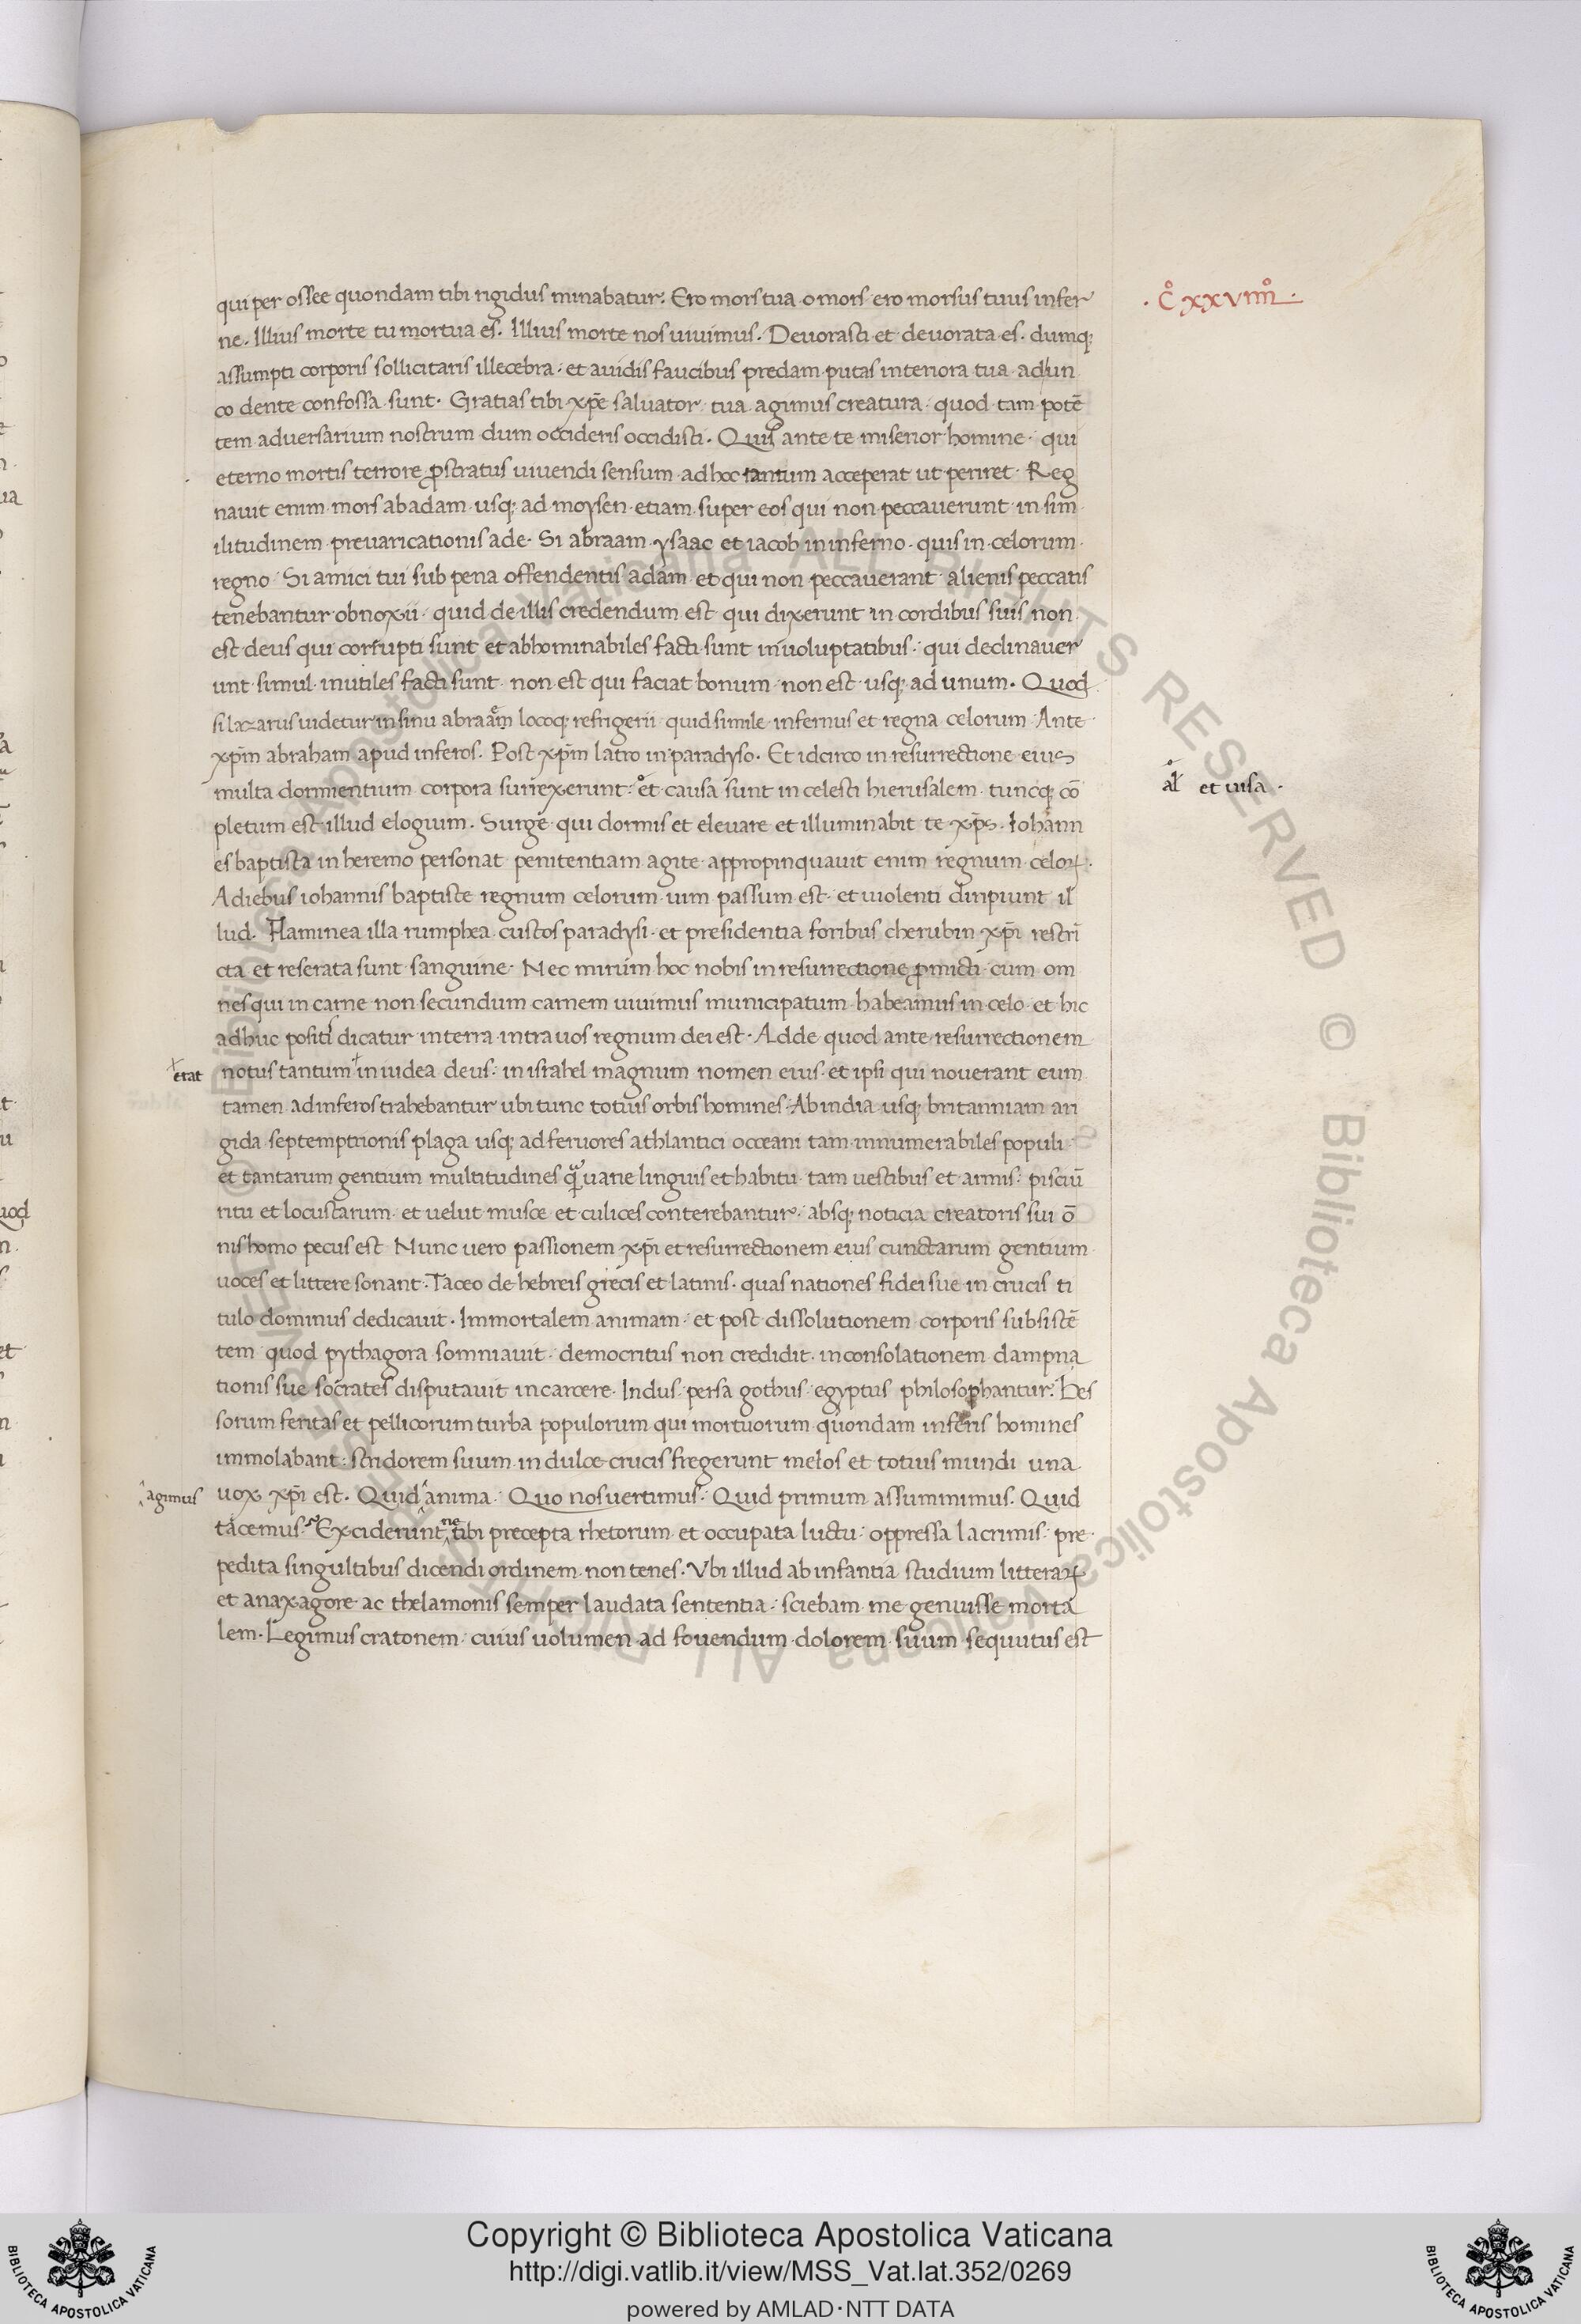 qui per ossee quondam tibi rigidus minabatur. Ero mors tua o mors ero morsus tuus infer
· C̊ xxviiii̊ ·
ne. Illius morte tu mortua es. Illius morte nos vivimus. Devorasti et devorata es. dumq;
assumpti corporis sollicitaris illecebra: et avidis faucibus predam putas interiora tua adun
co dente confossa sunt. Gratias tibi xp̄e salvator tua agimus creatura quod tam potē
tem adversarium nostrum dum occideris occidisti. Quis ante te miserior homine qui
eterno mortis terrore ꝓstratus vivendi sensum ad hoc tantum acceperat ut periret. Reg
navit enim mors ab adam usq; ad moysen etiam super eos qui non peccaverunt in sim
ilitudinem prevaricationis ade. Si abraam ysaac et iacob in inferno. quis in celorum
regno. Si amici tui sub pena offendentis adam et qui non peccaverant alienis peccatis
tenebantur obnoxii. quid de illis credendum est qui dixerunt in cordibus suis non
est deus qui corrupti sunt et abhominabiles facti sunt in voluptatibus. qui declinaver
unt simul inutiles facti sunt non est qui faciat bonum non est usq; ad unum. Quod
si lazarus videtur in sinu abraam locoq; refrigerii quid simile infernus et regna celorum Ante
xp̄m abraham apud inferos. Post xp̄m latro in paradyso. Et idcirco in resurrectione eius
multa dormientium corpora surrexerunt: et causa sunt in celesti hierusalem tuncq; cō
al̄ et visa ·
pletum est illud elogium. Surge qui dormis et elevare et illuminabit te xp̄s. Iohann
es baptista in heremo personat penitentiam agite appropinquavit enim regnum celoꝝ.
A diebus iohannis baptiste regnum celorum vim passum est et violenti diripiunt il
lud. Flaminea illa rumphea custos paradysi et presidentia foribus cherubin xp̄i restri
cta et reserata sunt sanguine. Nec mirum hoc nobis in resurrectione ꝓmicti cum om
nes qui in carne non secundum carnem vivimus municipatum habeamus in celo et hic
adhuc positi dicatur in terra intra vos regnum dei est. Adde quod ante resurrectionem
erat
notus tantum in iudea deus: in israhel magnum nomen eius et ipsi qui noverant eum
tamen ad inferos trahebantur ubi tunc totius orbis homines. Ab india usq; britanniam a ri
gida septemptrionis plaga usq; ad fervores athlantici occeani tam innumerabiles populi
et tantarum gentium multitudines quam varie linguis et habitu tam vestibus et armis: pisciū
ritu et locustarum et velut musce et culices conterebantur absq; noticia creatoris sui ō
nis homo pecus est Nunc vero passionem xp̄i et resurrectionem eius cunctarum gentium
voces et littere sonant. Taceo de hebreis grecis et latinis. quas nationes fidei sue in crucis ti
tulo dominus dedicavit. Immortalem animam et post dissolutionem corporis subsistē
tem quod pythagora somniavit. democritus non credidit. in consolationem dampna
tionis sue socrates disputavit in carcere. Indus persa gothus egyptus philosophantur. Bes
sorum feritas et pellicorum turba populorum qui mortuorum quondam inferis homines
immolabant: stridorem suum in dulce crucis fregerunt melos et totius mundi una
agimus
vox xp̄i est. Quid anima. Quo nos vertimus. Quid primum assumimus. Quid
tacemus. Exciderunt ne tibi precepta rhetorum et occupata luctu: oppressa lacrimis: pre
pedita singultibus dicendi ordinem non tenes. Ubi illud ab infantia studium litteraꝝ
et anaxagore ac thelamonis semper laudata sententia: sciebam me genuisse morta
lem. Legimus cratonem cuius volumen ad fovendum dolorem suum sequutus est
Copyright © Biblioteca Apostolica Vaticana
http://digi.vatlib.it/view/MSS_Vat.lat.352/0269
powered by AMLAD·NTT DATA